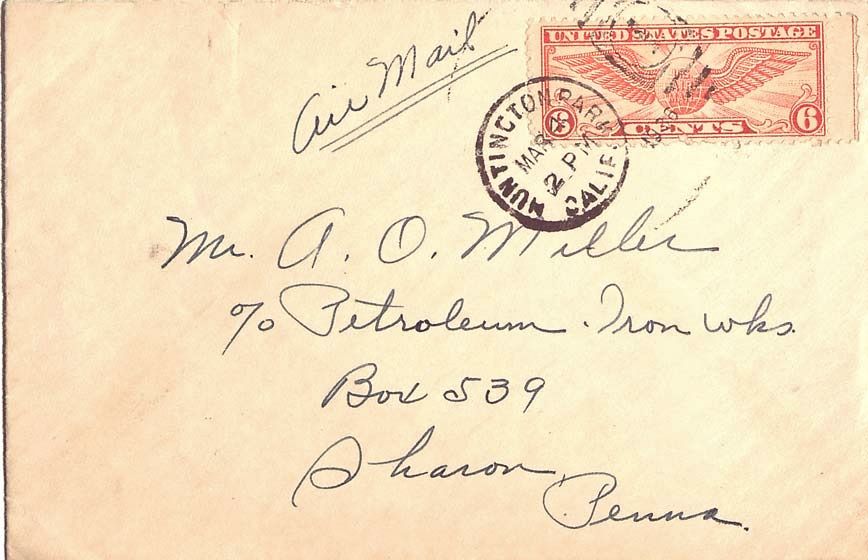 Air Mail
UNITED STATES POSTAGE
6 CENTS 6
HUNTINGTON PARK
MAR 4
2 PM
CALIF.
Mr. A. O. Miller
℅ Petroleum Iron Wks.
Box 539
Sharon,
Penna.